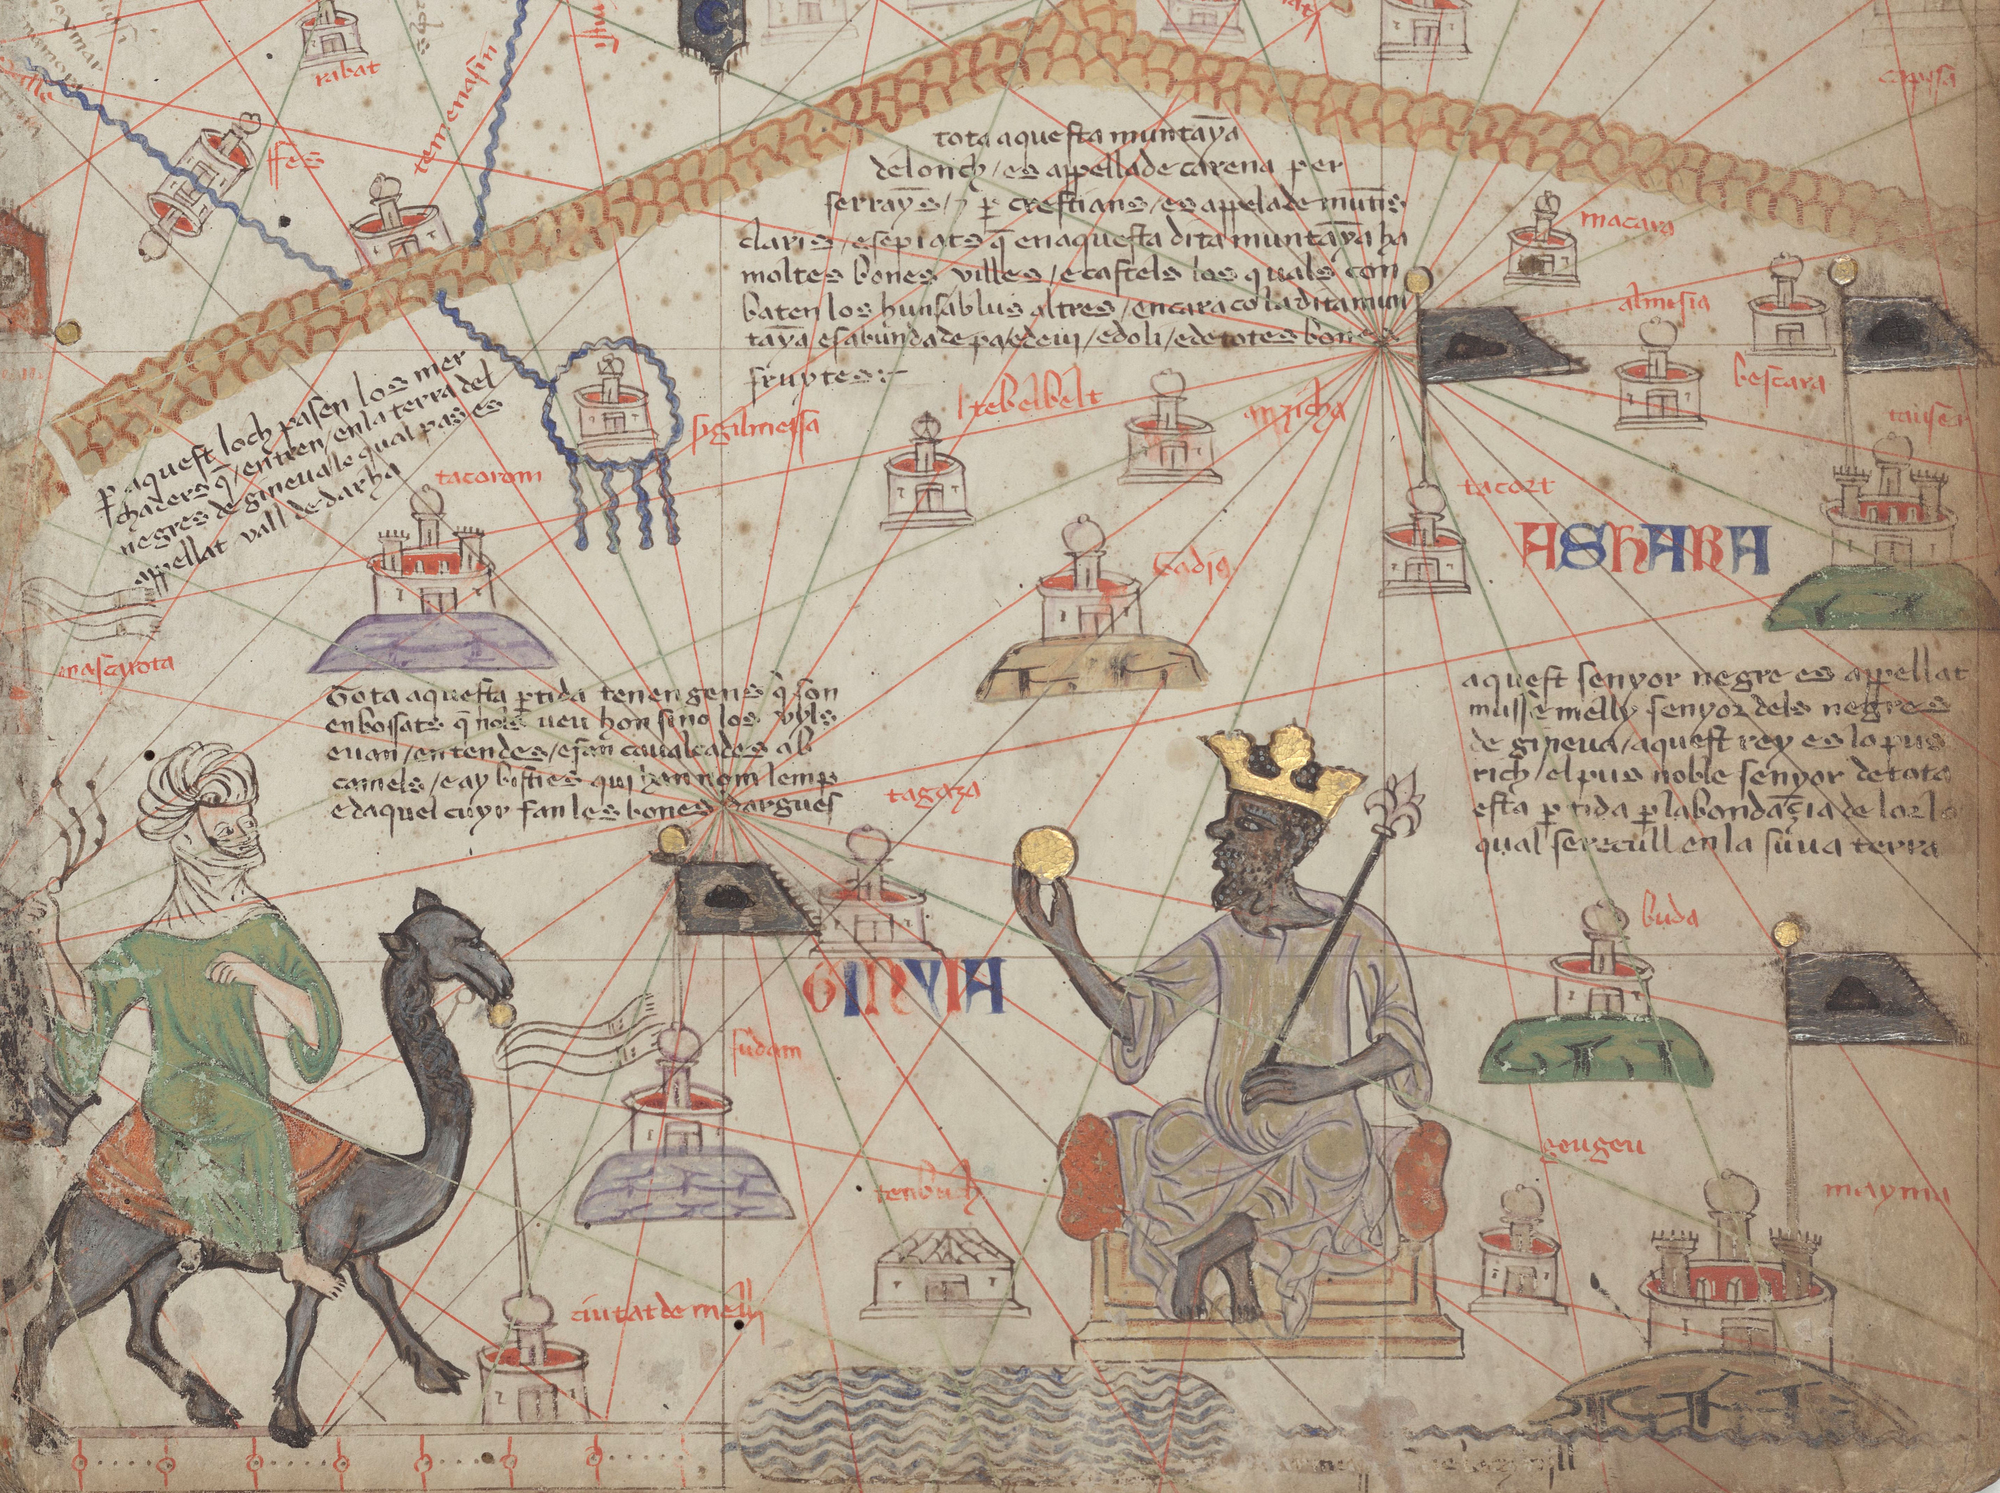 rabat
temenasin
ffes
capisa
tota aquesta muntaya
delonch / es appellade carena per
serrayns / 7 per crestians / es appelade muntis
claris / e sepiats q̄ en aquesta dita muntaya ha
moltes bones villes / e castels los quals com
baten los huns ab lus altres / encara co la dita mun
taya es abunda de pa / e de vi / e d oli / e de totes bones
fruytes :-
macara
almsia
bescara
p̱ aquest loch pasen los mer
chaders q̄ / entren / en la terra del
negres de gineua le qual pas es
appellat vall de darha
sigilmessa
tebelbelt
anzicha
tacort
tacorom
ASHARA
Gadia
mascarota
Tota aquesta ꝑtida tenen gens q̄ son
enbossats q̄ nols veu hom sino los vyls
e van / en tendes / e fan caualcades ab
camels / e ay bisties qui han nom lemp
e daquel cuyr fan les bones dargues
aquest senyor negre es appellat
musse melly senyor dels negres
de gineua / aquest rey es lo pus
rich / el pus noble senyor de tota
esta ꝑtida ꝑ labondançia de lor lo
qual se recull en la suua terra
tagaza
buda
GINYIA
sudam
tenbuch
geugeu
mayma
ciutat de melly